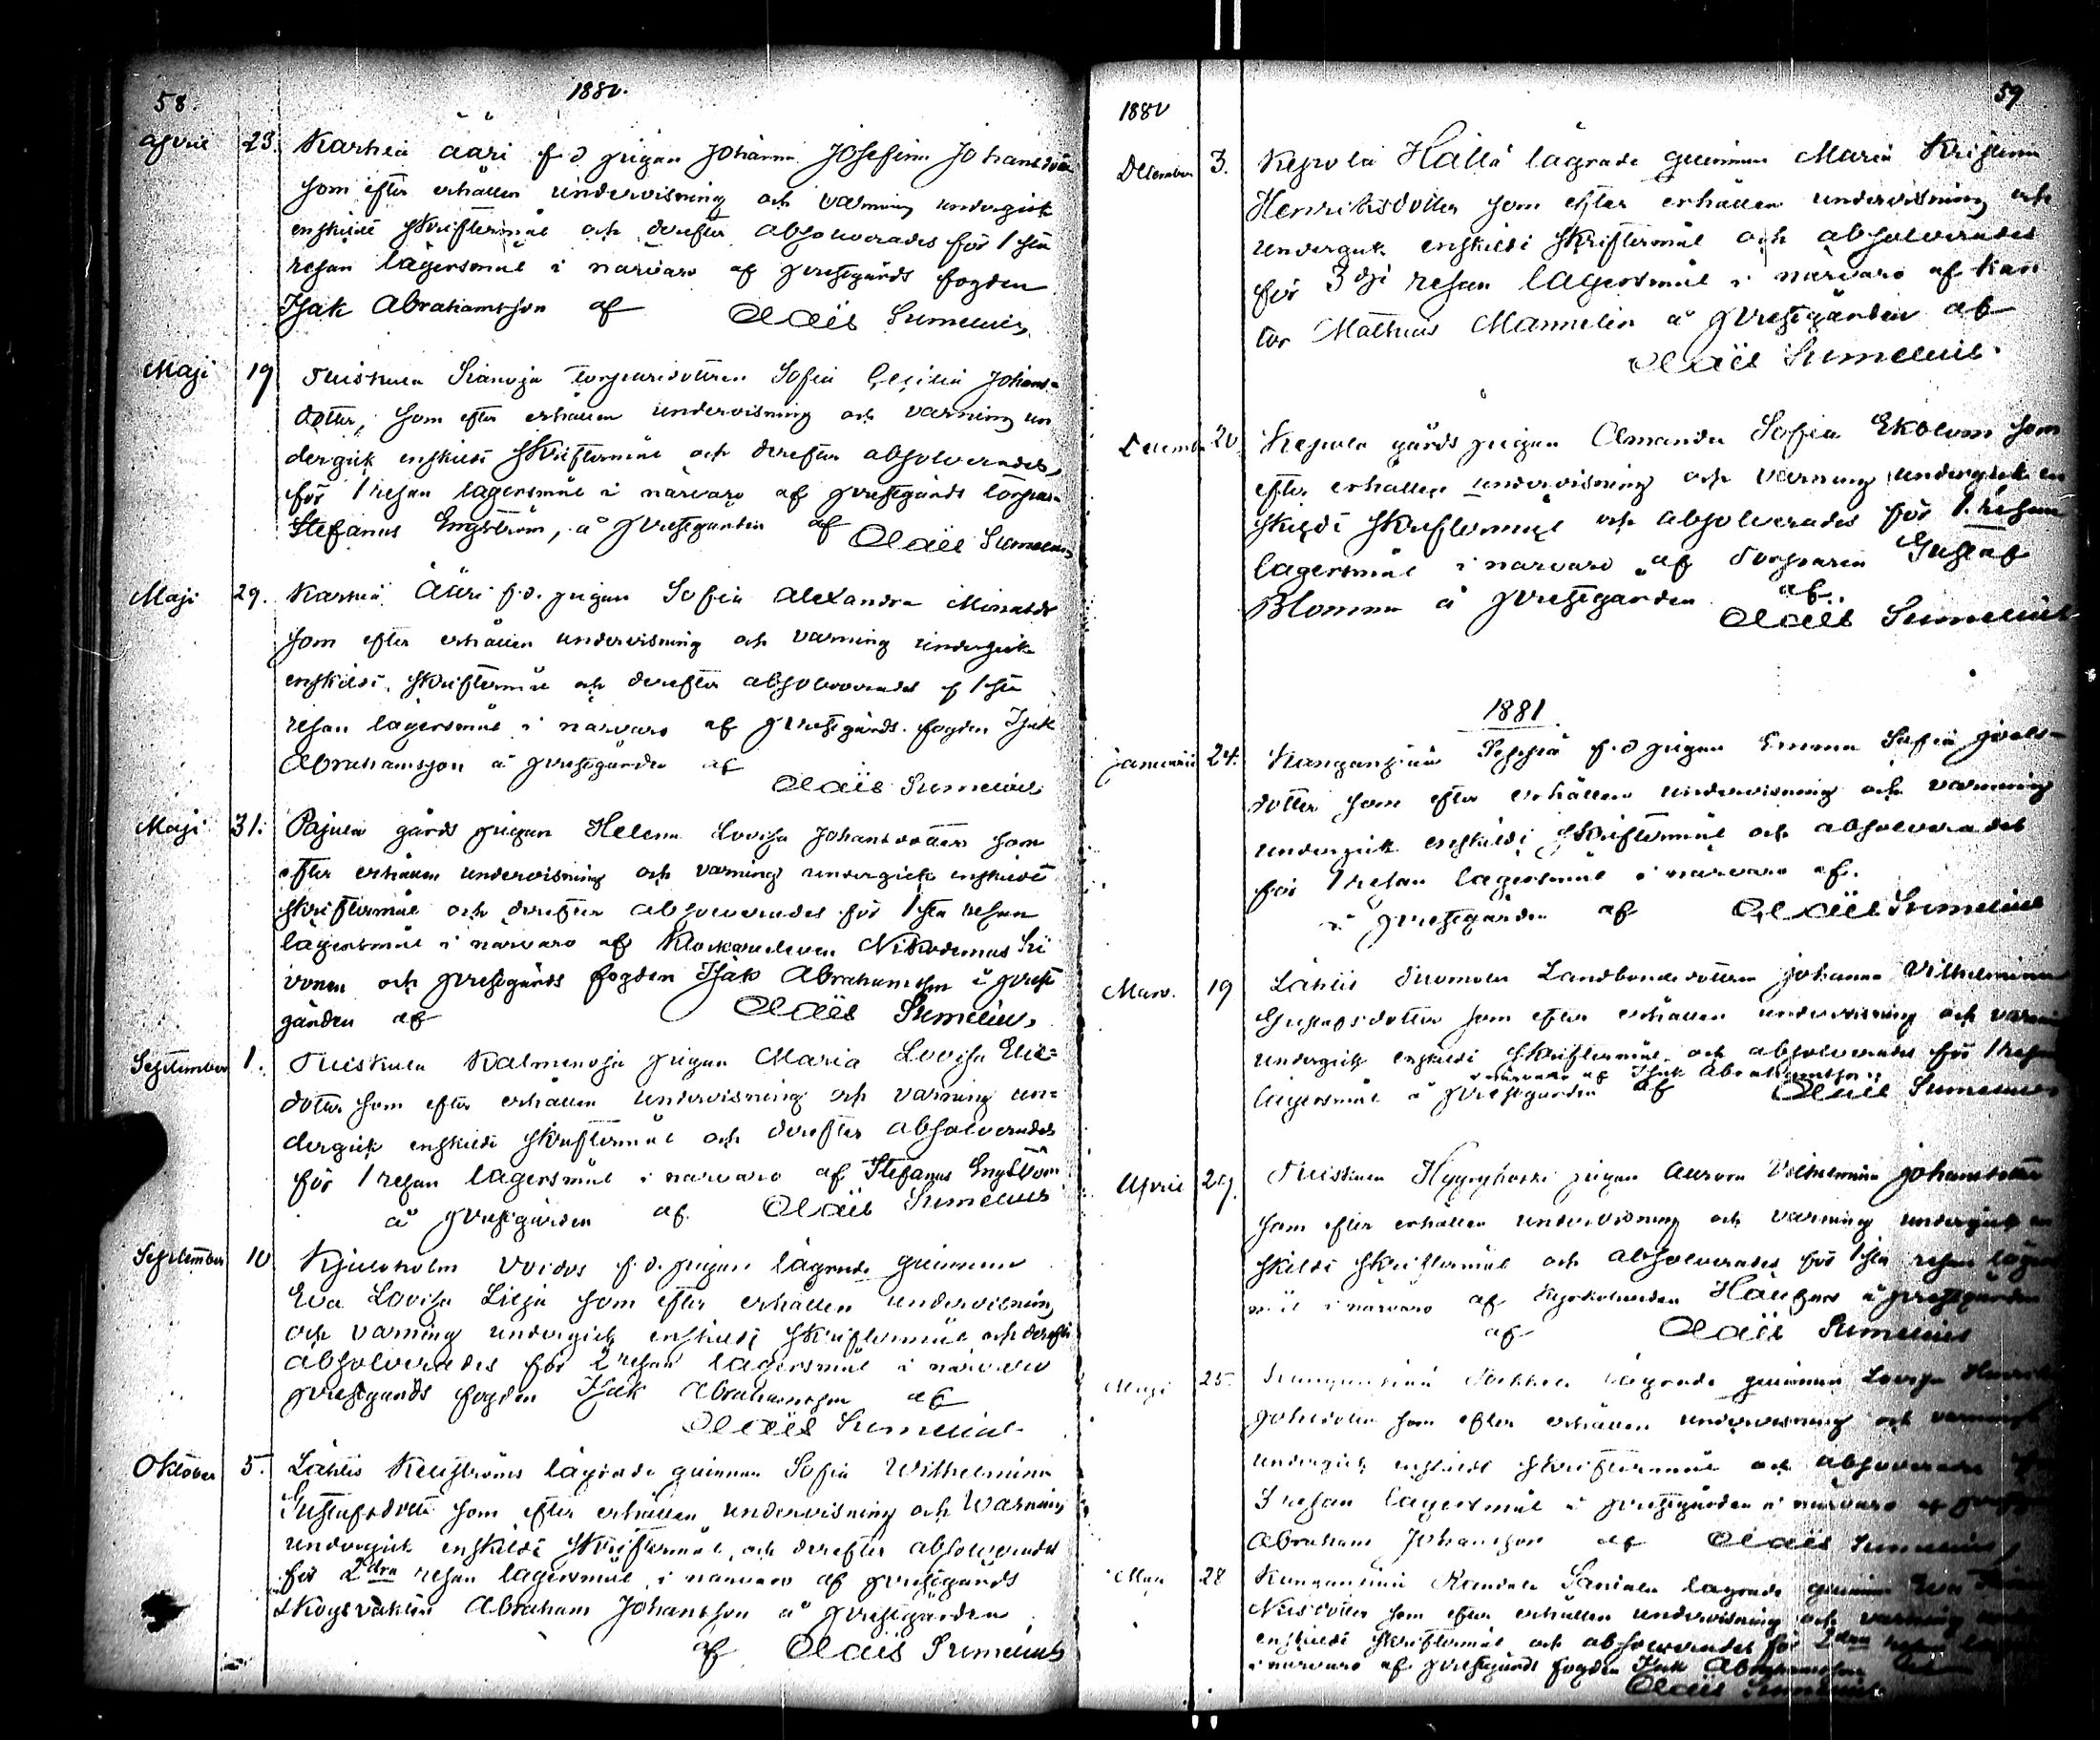 58.
1880.
April 23. Karhiä Ääri f.d. pigan Johanna Josefina Johansdoter
som efter erhållen undervisning och varning undergick
enskildt skriftermål och derefter absolverades för 1sta
resan lägersmål i närvaro af prestgårds fogden
Isak Abrahamsson af Olaus Sumelius
Maji 19 Tuiskula torparedottren Sofia Cecilia Johans-
dotter, som efter erhållen undervisning och varning un
dergick enskildt skriftermål och derefter absolverades,
för 1 resan lägersmål i närvaro af prestgårds torpar-
Stefanus Engström, å prestgården af Olaus Sumelius
Maji 29. Karhiä Ääri f.d. pigan Sofia Alexandra
som efter erhållen undervisning och varning undergick
enskildt skriftermål och derefter absolverades f 1sta
resan lägersmål i närvaro af prestgårds fogden Isak
Abrahamsson å prestgården af
Olaus Sumelius
Maji 31. Pajula gårds pigan Helena Lovisa Johansdotter som
efter erhållen undervisning och varning undergick enskildt
skriftermål och derefter absolverades för 1sta resan
lägersmål i närvaro af Klockareleven Nikodemus
och prestgårds fogden Isak Abrahamsson å prest
gården af Olaus Sumelius
September 1. Tuiskula Kalmenoja pigan Maria Lovisa Elie-
dotter som efter erhållen undervisning och varning un-
dergick enskildt skriftermål och derefter absolverades
för 1 resan lägersmål i närvaro af Stefanus Engström
å prestgården af Olaus Sumelius
September 10 Kjuloholm Voidos f.d. pigan lägrade qvinnan
Eva Lovisa Lilja som efter erhållen undervisning
och varning undergick enskildt skriftermål och derefter
absolverades för 2 resan lägersmål i närvaro
prestgårds fogden Isak Abrahamsson af
Olaus Sumelius
Oktober 5. Lähtis lägrade qvinnan Sofia Wilhelmina
Gustafsdotter som efter erhållen undervisning och Warning
undergick enskildt skriftermål, och derefter absolverades
för 2dra resan lägersmål, i närvaro af prestgårds
skogsvakten Abraham Johansson å prestgården
af Olaus Sumelius
59
1880
December 3. Kepola Hälla lägrade qvinnan Maria Kristina
Henriksdotter som efter erhållen undervisning och
undergick enskildt skriftermål och absolverades
för 3dje resan lägersmål i närvaro af kan
tor Matthias Mannelin å prestgården af
Olaus Sumelius.
December 20. Kepola gårds pigan Amanda Sofia Ekblom som
efter erhållen undervisning och varning undergick en
skildt skriftermål och absolverades för 1. resan
lägersmål i närvaro af Torparen Gustaf
Blomma å prestgården af
Olaus Sumelius
1881.
Januarii 24. Seppiä f.d. pigan Emma Sofia Joels-
dotter som efter erhållen undervisning och varning
undergick enskildt skriftermål och absolverades
för 1 resan lägersmål i närvaro af.
å prestgården af Olaus Sumelius
Mars. 19 Lähtis Tuomola Landbondedottren Johanna Vilhelmina
Gustafsdotter som efter erhållen undervisning och
undergick enskildt skriftermål, och absolverades för 1 resan
i närvaro af Isak Abrahamsson
lägersmål å prestgården af Olaus Sumelius
April 29. pigan Aurora Vilhelmina Johansdotter
som efter erhållen undervisning och varning undergick en
skildt skriftermål och absolverades för 1sta resan
i närvaro af å prestgården
af Olaus Sumelius
Maji 25. lägrade qvinnan Lovisa
som efter erhållen undervisning och varning
undergick enskildt skriftermål och absolverades
3 resan lägersmål i prestgården i närvaro af
Abraham Johansson af Olaus Sumelius,
28 lägrade qvinnan Eva
Nilsdotter som efter erhållen undervisning och varning
enskildt skriftermål och absolverades för 2dra resan
i närvaro af prestgårds fogden Isak Abrahamsson
Olaus Sumelius